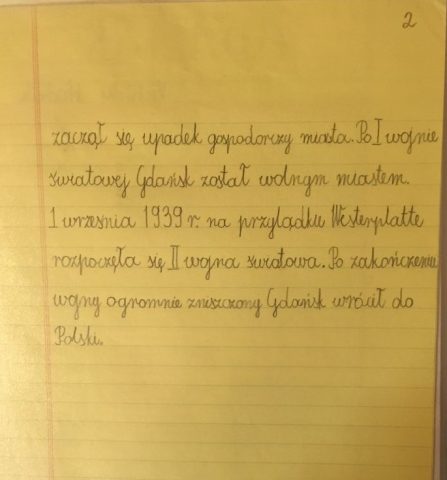 2
zaczął się upadek gospodarczy miasta. Po I wojnie
światowej Gdańsk został wolnym miastem.
1 września 1939 r. na przylądku Westerplatte
rozpoczęła się II wojna światowa. Po zakończeniu
wojny ogromnie zniszczony Gdańsk wrócił do
Polski.